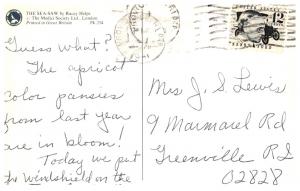 THE SEA-SAW by Racey Helps
The Medici Society Ltd., London
Printed in Great Britain PK 254
12
Guess what?
The apricot
color pansies
from last year
are in bloom!
Today we put
the windshield on the
Mrs J. S. Lewis
9 Marmarel Rd
Greenville RI
02828